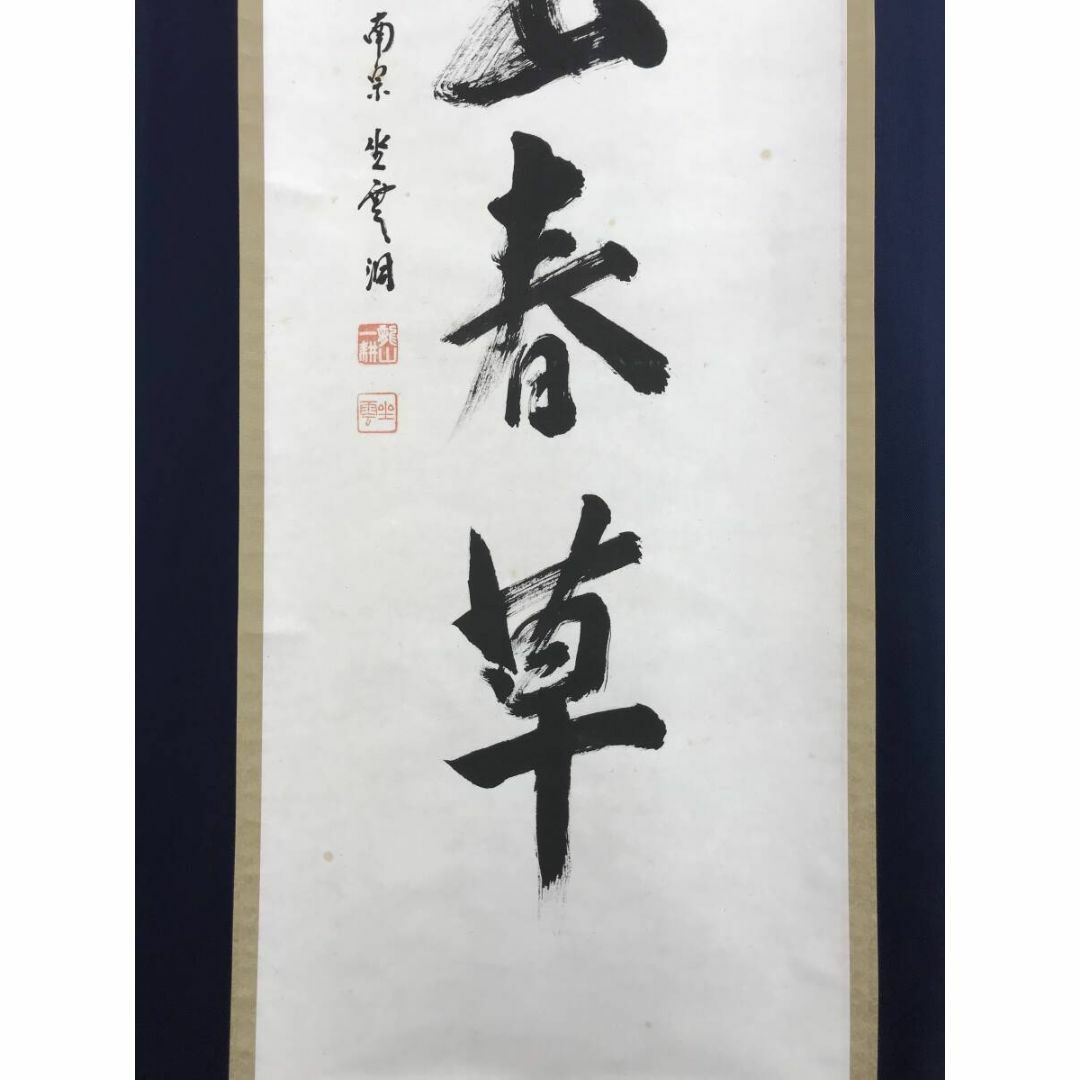 春草
南宗 坐雲洞
龍山
一耕
坐雲